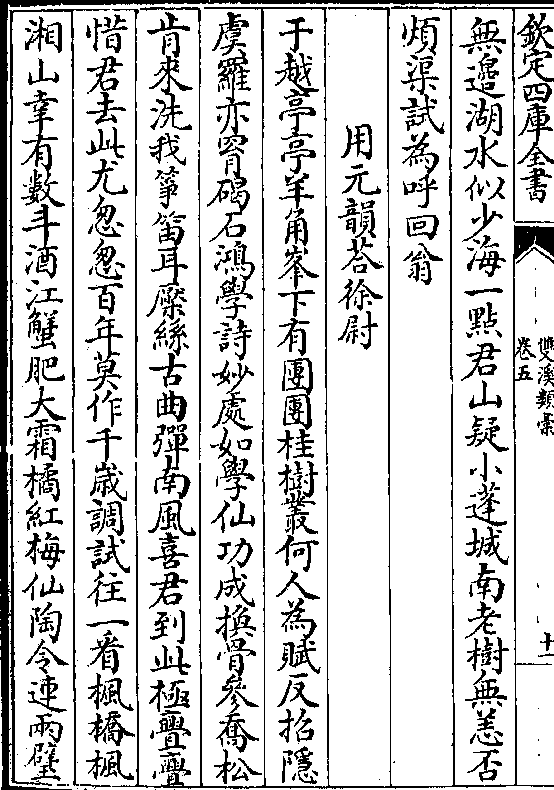 欽定四庫全書
雙溪類槀
卷五
十一
無邉湖水似少海一點君山疑小蓬城南老樹無恙否
煩渠試為呼回翁
用元韻荅徐尉
于越亭亭羊角峯下有團團桂樹叢何人為賦反招隱
虞羅亦罥碣石鴻學詩妙處如學仙功成換骨參喬松
肯來洗我箏笛耳檿絲古曲彈南風喜君到此極亹亹
惜君去此尤怱怱百年莫作千歳調試往一看楓橋楓
湘山幸有數斗酒江蟹肥大霜橘紅梅仙陶令連兩璧